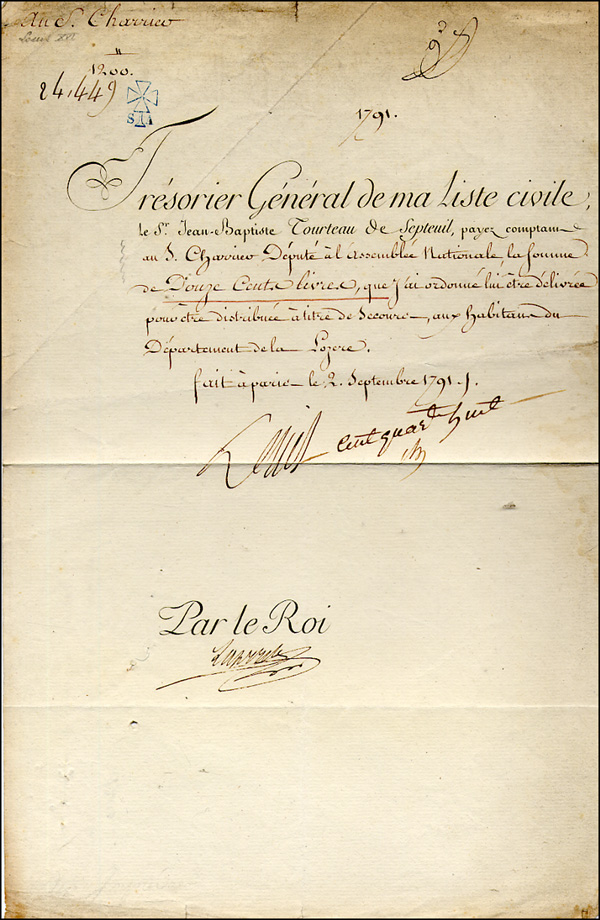 Au S. Charrier
Louis XVI
1200.
24.449
1791.
Trésorier Général de ma Liste civile,
le Sr. Jean-Baptiste Tourteau de Septeuil, payez comptant
au S. Charrier Député à l'Assemblée Nationale, la somme
de Douze Cents livres, que j'ai ordonné lui être délivrée
pour être distribuée à titre de Secours, aux habitans du
Département de la Lozere.
fait à paris le 2. Septembre 1791.
Louis cent quarte huit
Par le Roi
Laporte